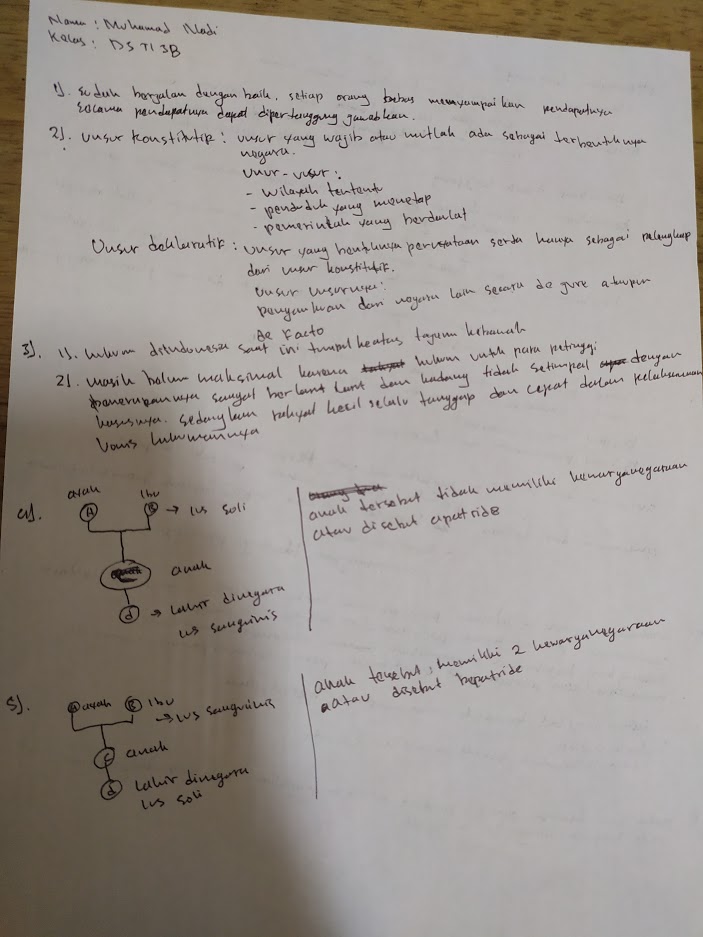 Nama : Muhamad Nadi
Kelas : DS TI 3B
1). sudah berjalan dengan baik. setiap orang bebas menyampaikan pendapatnya
selama pendapatnya dapat dipertanggung jawabkan.
2). unsur konstitutif : unsur yang wajib atau mutlak ada sebagai terbentuknya
negara.
unur-unsur :
- wilayah tententu
- penduduk yang menetap
- pemerintah yang berdaulat
Unsur deklaratif : unsur yang bentuknya pernyataan serta hanya sebagai pelengkap
dari unsur konstitutif.
unsur unsurnya :
pengakuan dari negara lain secara de gure ataupun
de Facto
3). 1). hukum diindonesia saat ini tumpul keatas tajam kebawah
2). masih belum maksimal karena hukum untuk para petinggi
penerapannya sangat berlarut larut dan kadang tidak setimpal dengan
kasusnya. sedangkan rakyat kecil selalu tanggap dan cepat dalam pelaksanaan
vonis hukumannya
4).
ayah Ibu
A B → ius soli
anak
d → Lahir dinegara
ius sanguinis
anak tersebut tidak memiliki kewarganegaraan
atau disebut apatride
5).
A ayah B Ibu
→ ius sanguinis
C anak
d Lahir dinegara
ius soli
anak tersebut memiliki 2 kewarganegaraan
atau disebut bepatride